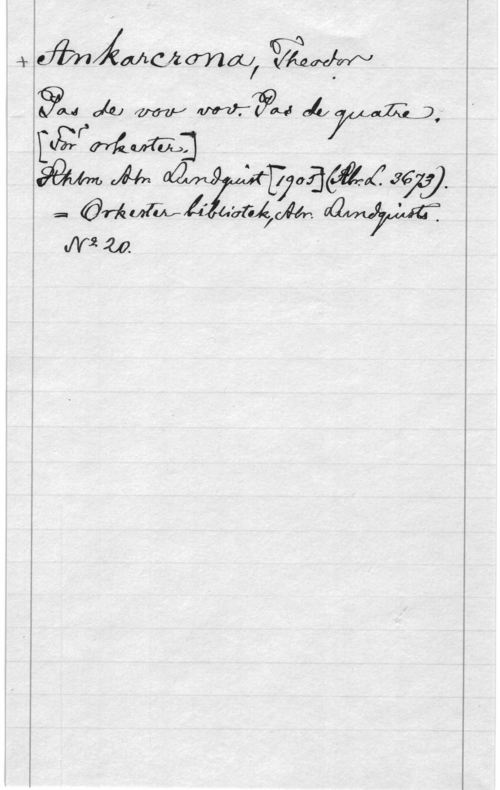 + Ankarcrona, Theodor
Pas de vov vov. Pas de quatre.
[För orkester.]
Sthlm Abr. Lundquist [1905] (Abr. L. 3673).
= Orkester-bibliotek, Abr. Lundquists.
Nº 20.